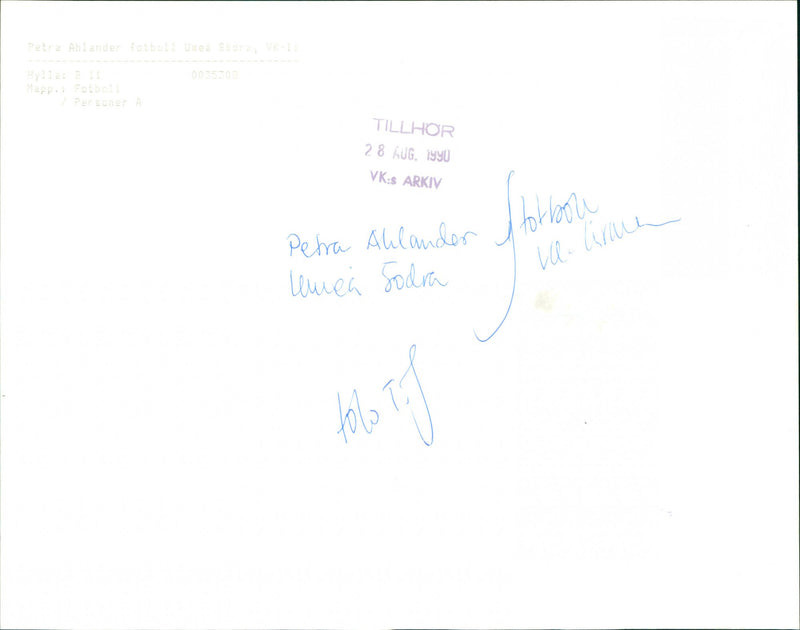 Petra Ahlander fotboll Umeå Södra, VK-
Hylla: B II 0035202
Mapp.: Fotboll
/ Personer A
TILLHÖR
28 AUG. 1990
VK:s ARKIV
Petra Ahlander
Umeå Södra
fotboll
foto T.J